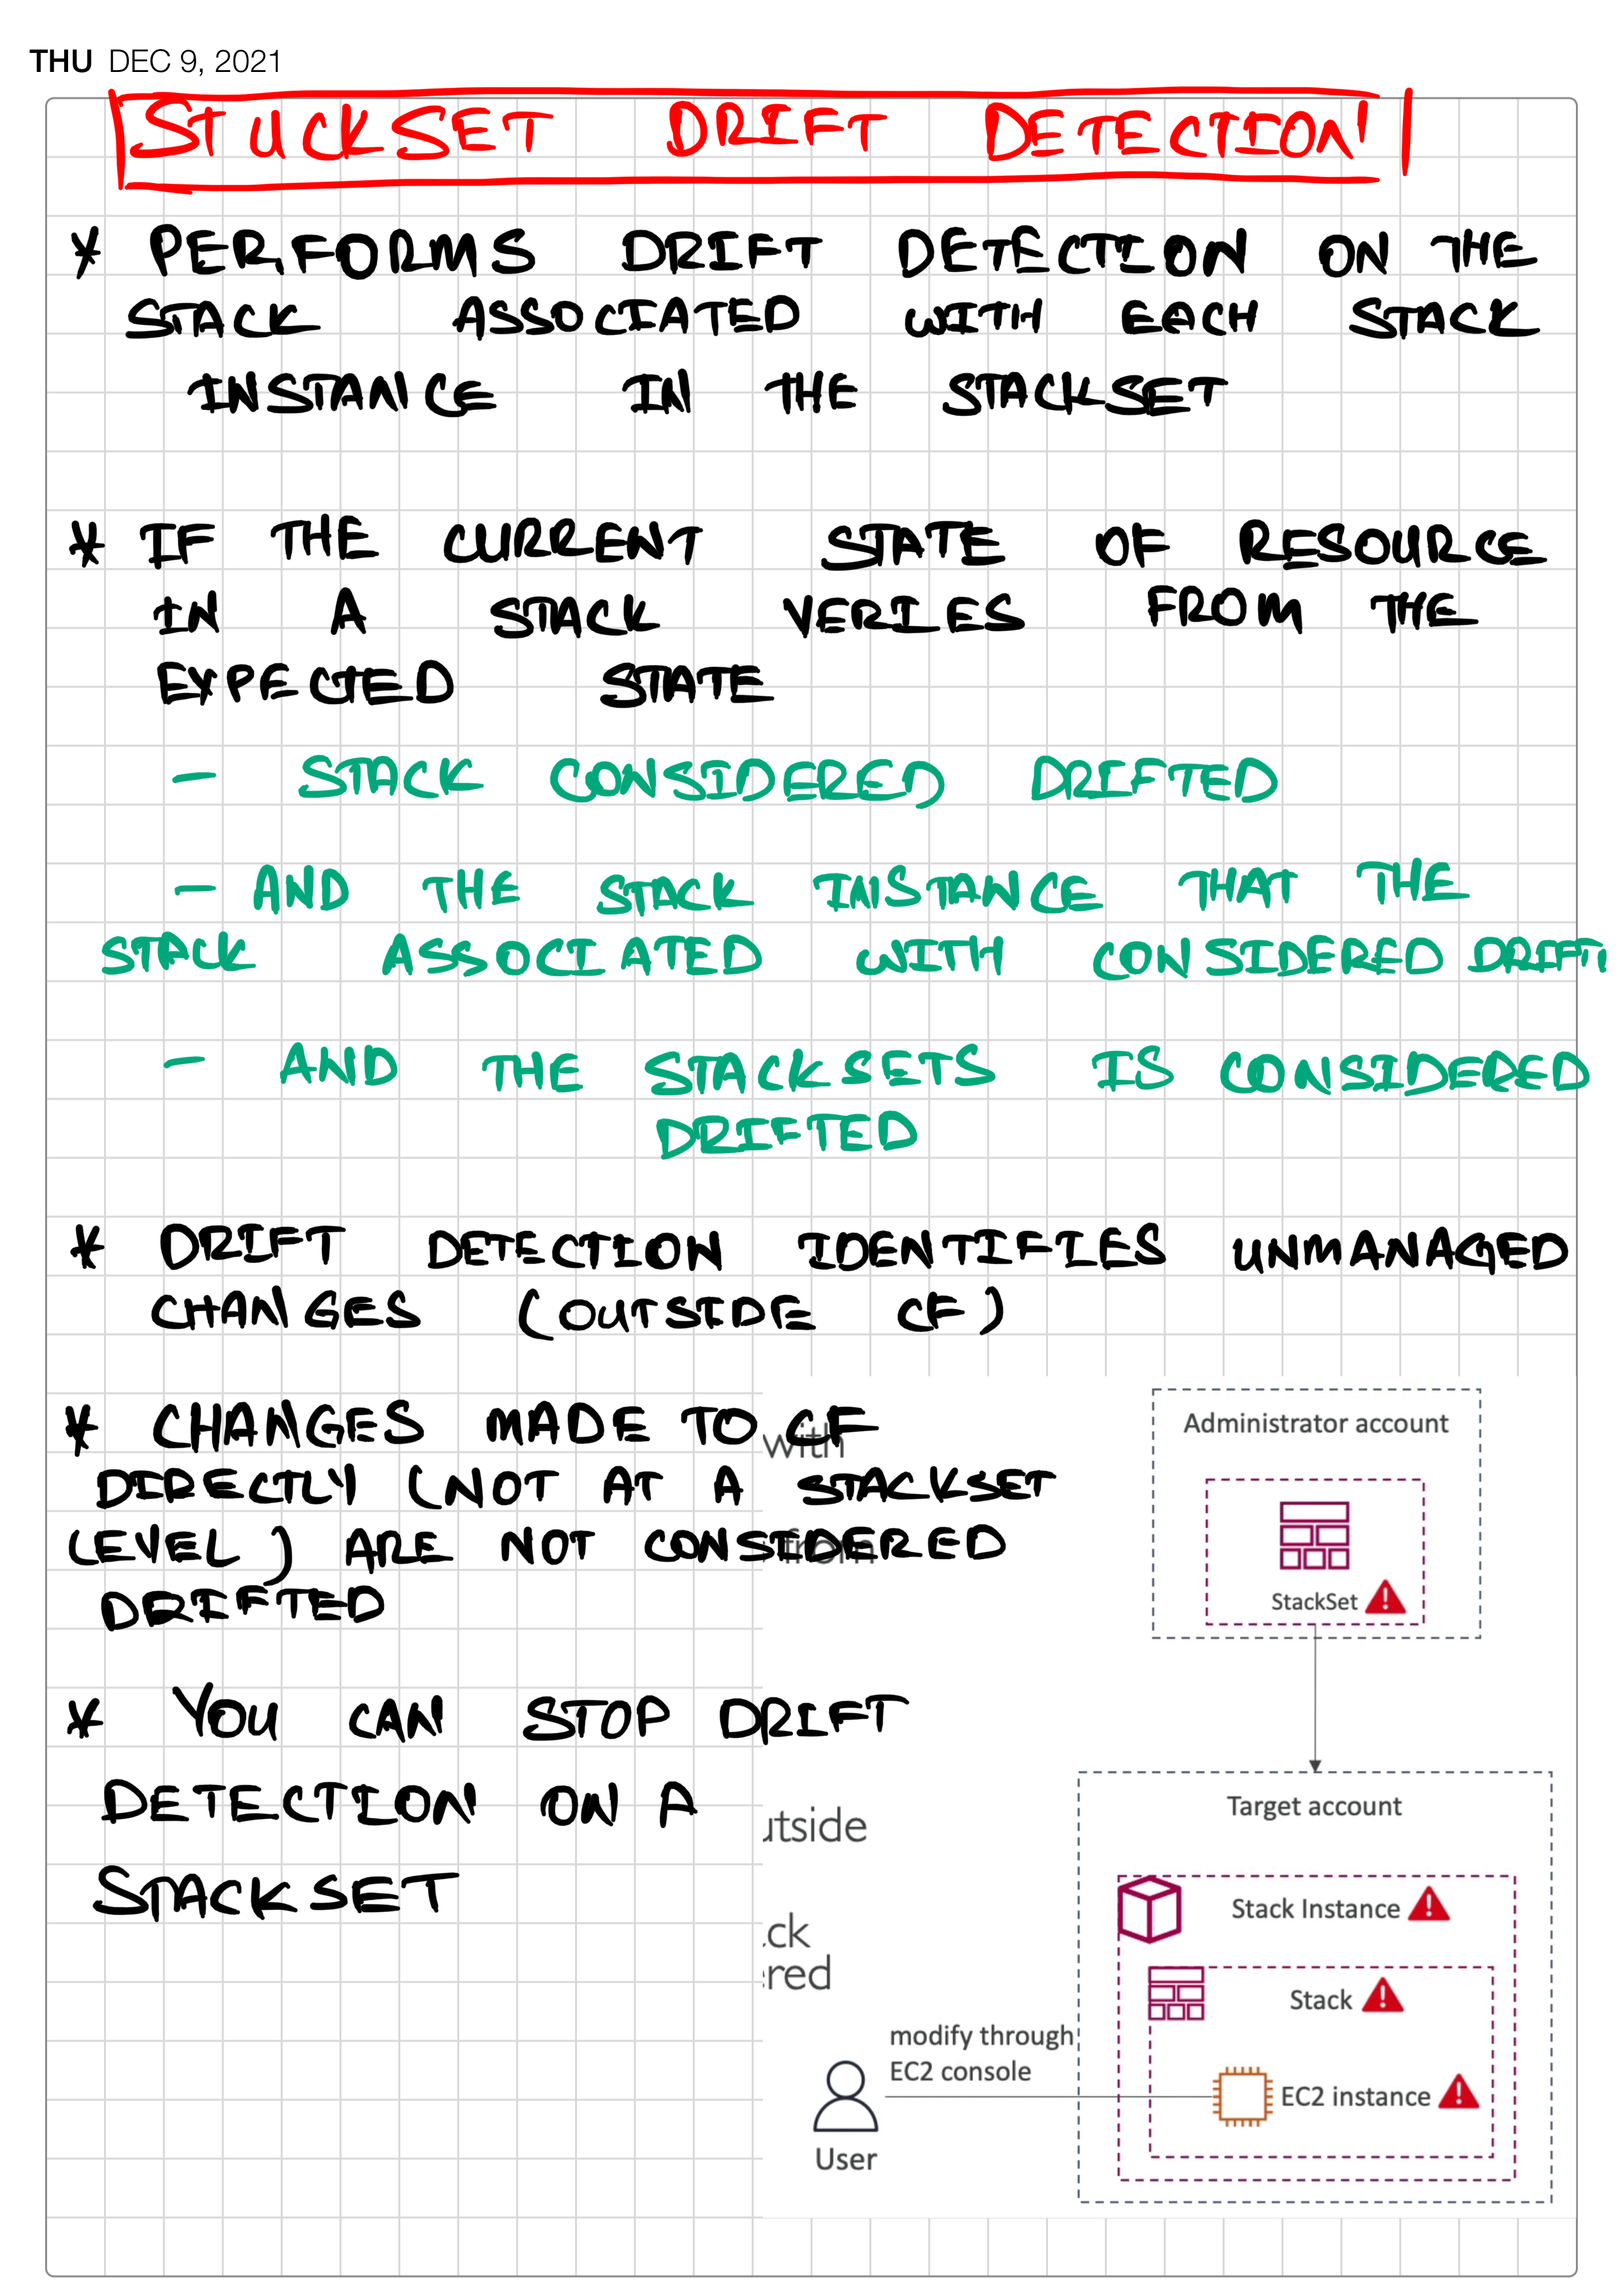 THU DEC 9, 2021
STUCKSET DRIFT DETECTION
* PERFORMS DRIFT DETECTION ON THE
STACK ASSOCIATED WITH EACH STACK
INSTANCE IN THE STACKSET
* IF THE CURRENT STATE OF RESOURCE
IN A STACK VERIES FROM THE
EXPECTED STATE
- STACK CONSIDERED DRIFTED
- AND THE STACK INSTANCE THAT THE
STACK ASSOCIATED WITH CONSIDERED
- AND THE STACKSETS IS CONSIDERED
DRIFTED
* DRIFT DETECTION IDENTIFIES UNMANAGED
CHANGES (OUTSIDE CF)
* CHANGES MADE TO CF
DIRECTLY (NOT AT A STACKSET
LEVEL) ARE NOT CONSIDERED
DRIFTED
* YOU CAN STOP DRIFT
DETECTION ON A
STACKSET
with
from
utside
ck
red
Administrator account
StackSet
Target account
Stack Instance
Stack
modify through
EC2 console
EC2 instance
User